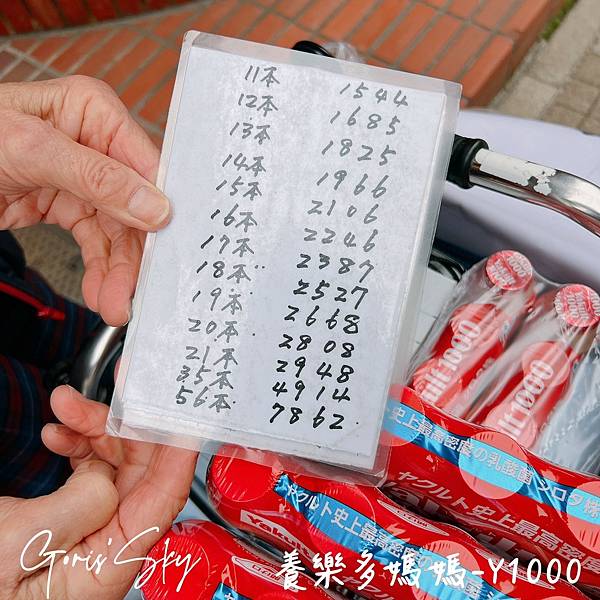 11本 1544
12本 1685
13本 1825
14本 1966
15本 2106
16本 2246
17本 2387
18本 2527
19本 2668
20本 2808
21本 2948
35本 4914
56本 7862
ト史上最高密度の乳酸菌 シロタ株
ヤクルト史上最高密度
ヤクルト史上最高
Yakult
Goris' Sky
養樂多媽媽-Y1000